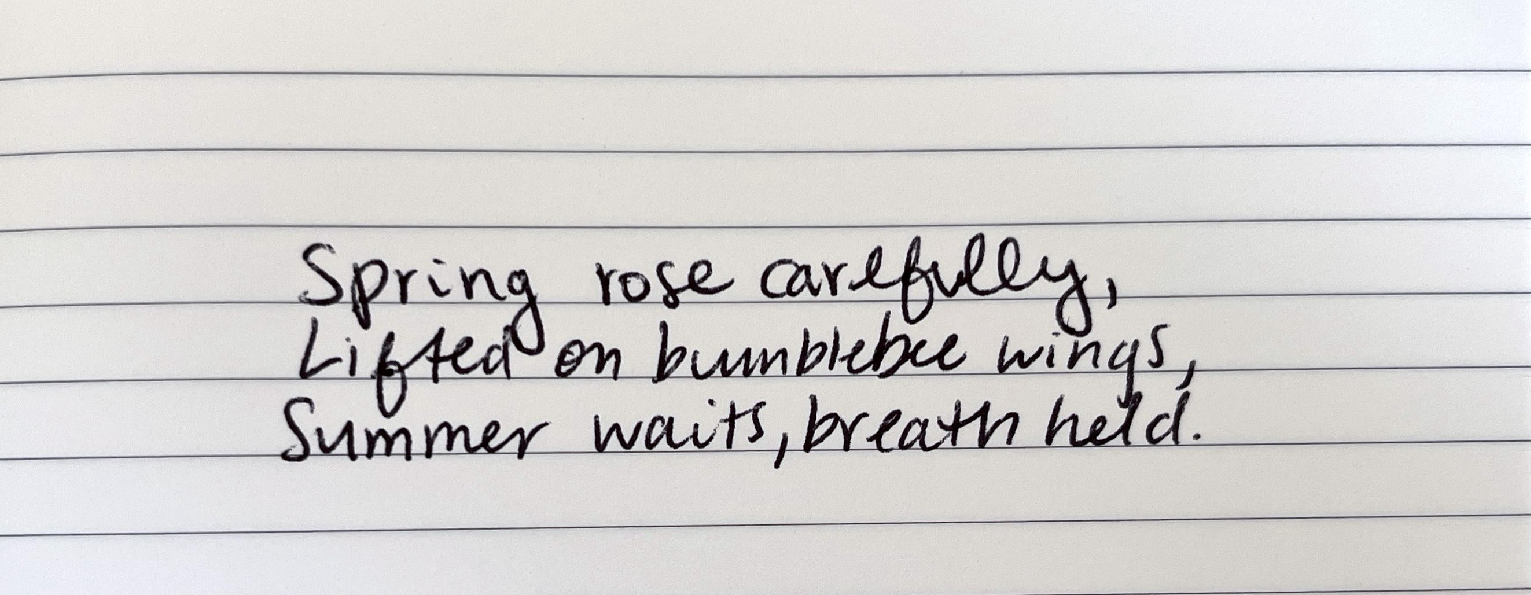 Spring rose carefully,
Lifted on bumblebee wings,
Summer waits, breath held.